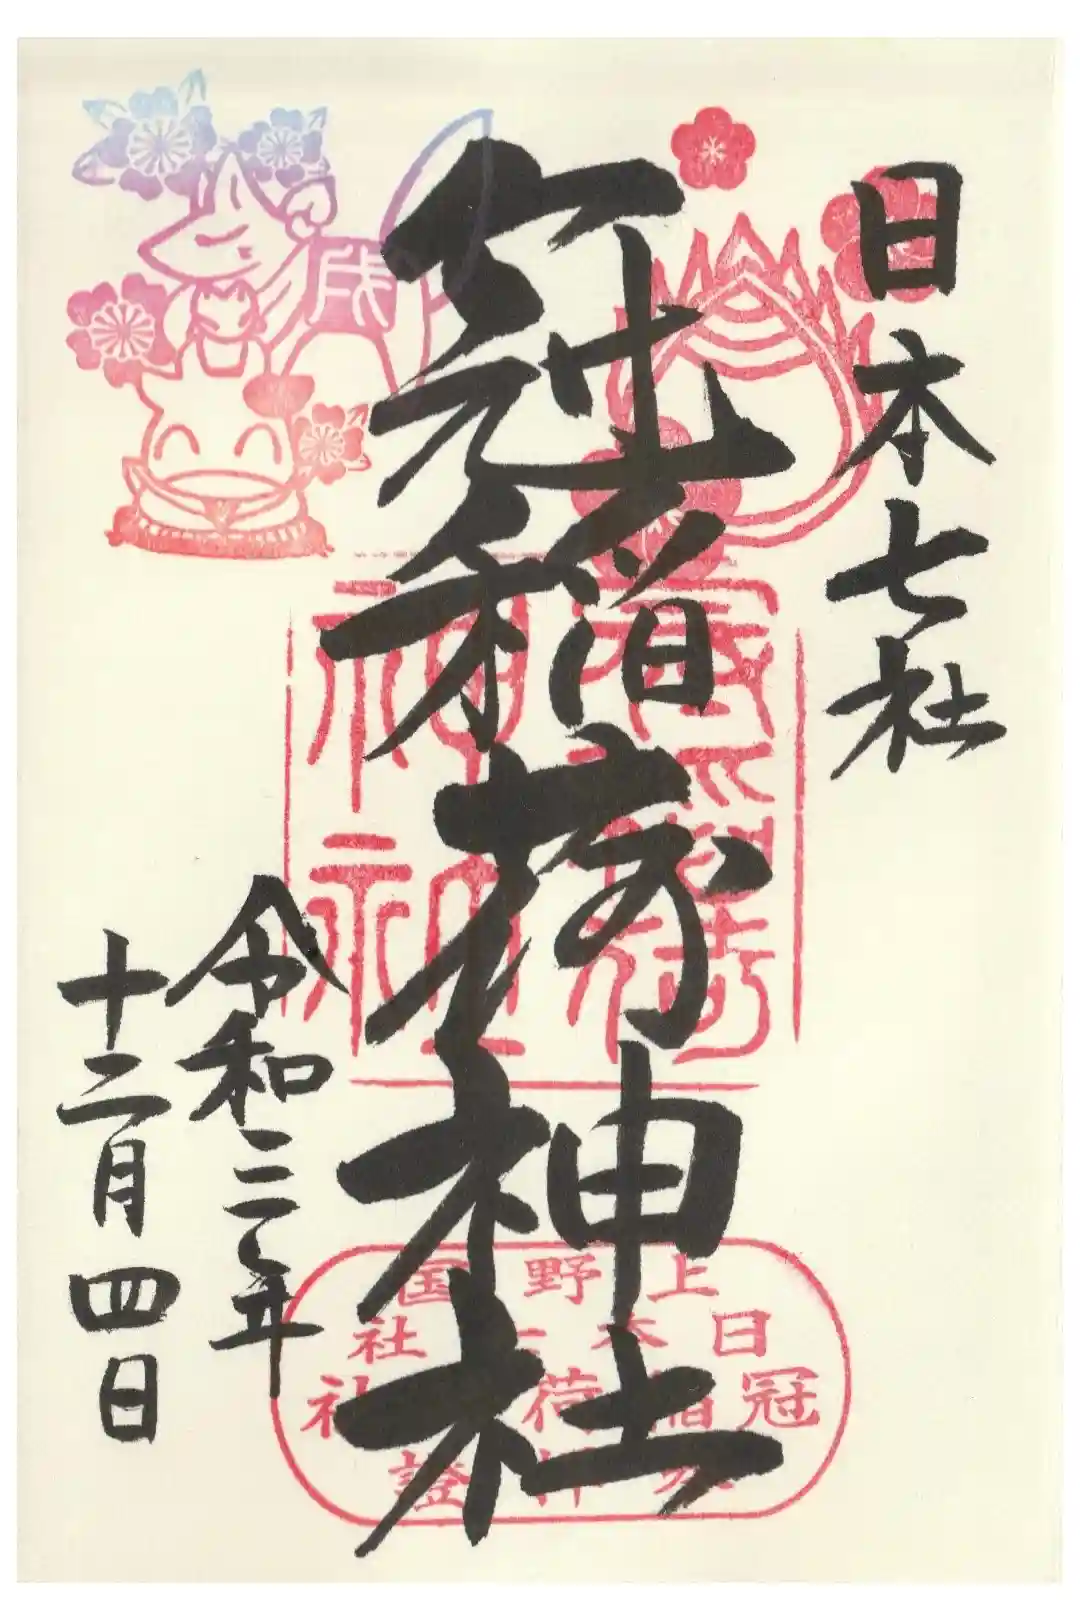 日本七社
冠稲荷神社
令和二年
十二月四日
冠稲荷
神社
上野国
日本七社
冠稲荷神社
参拝證